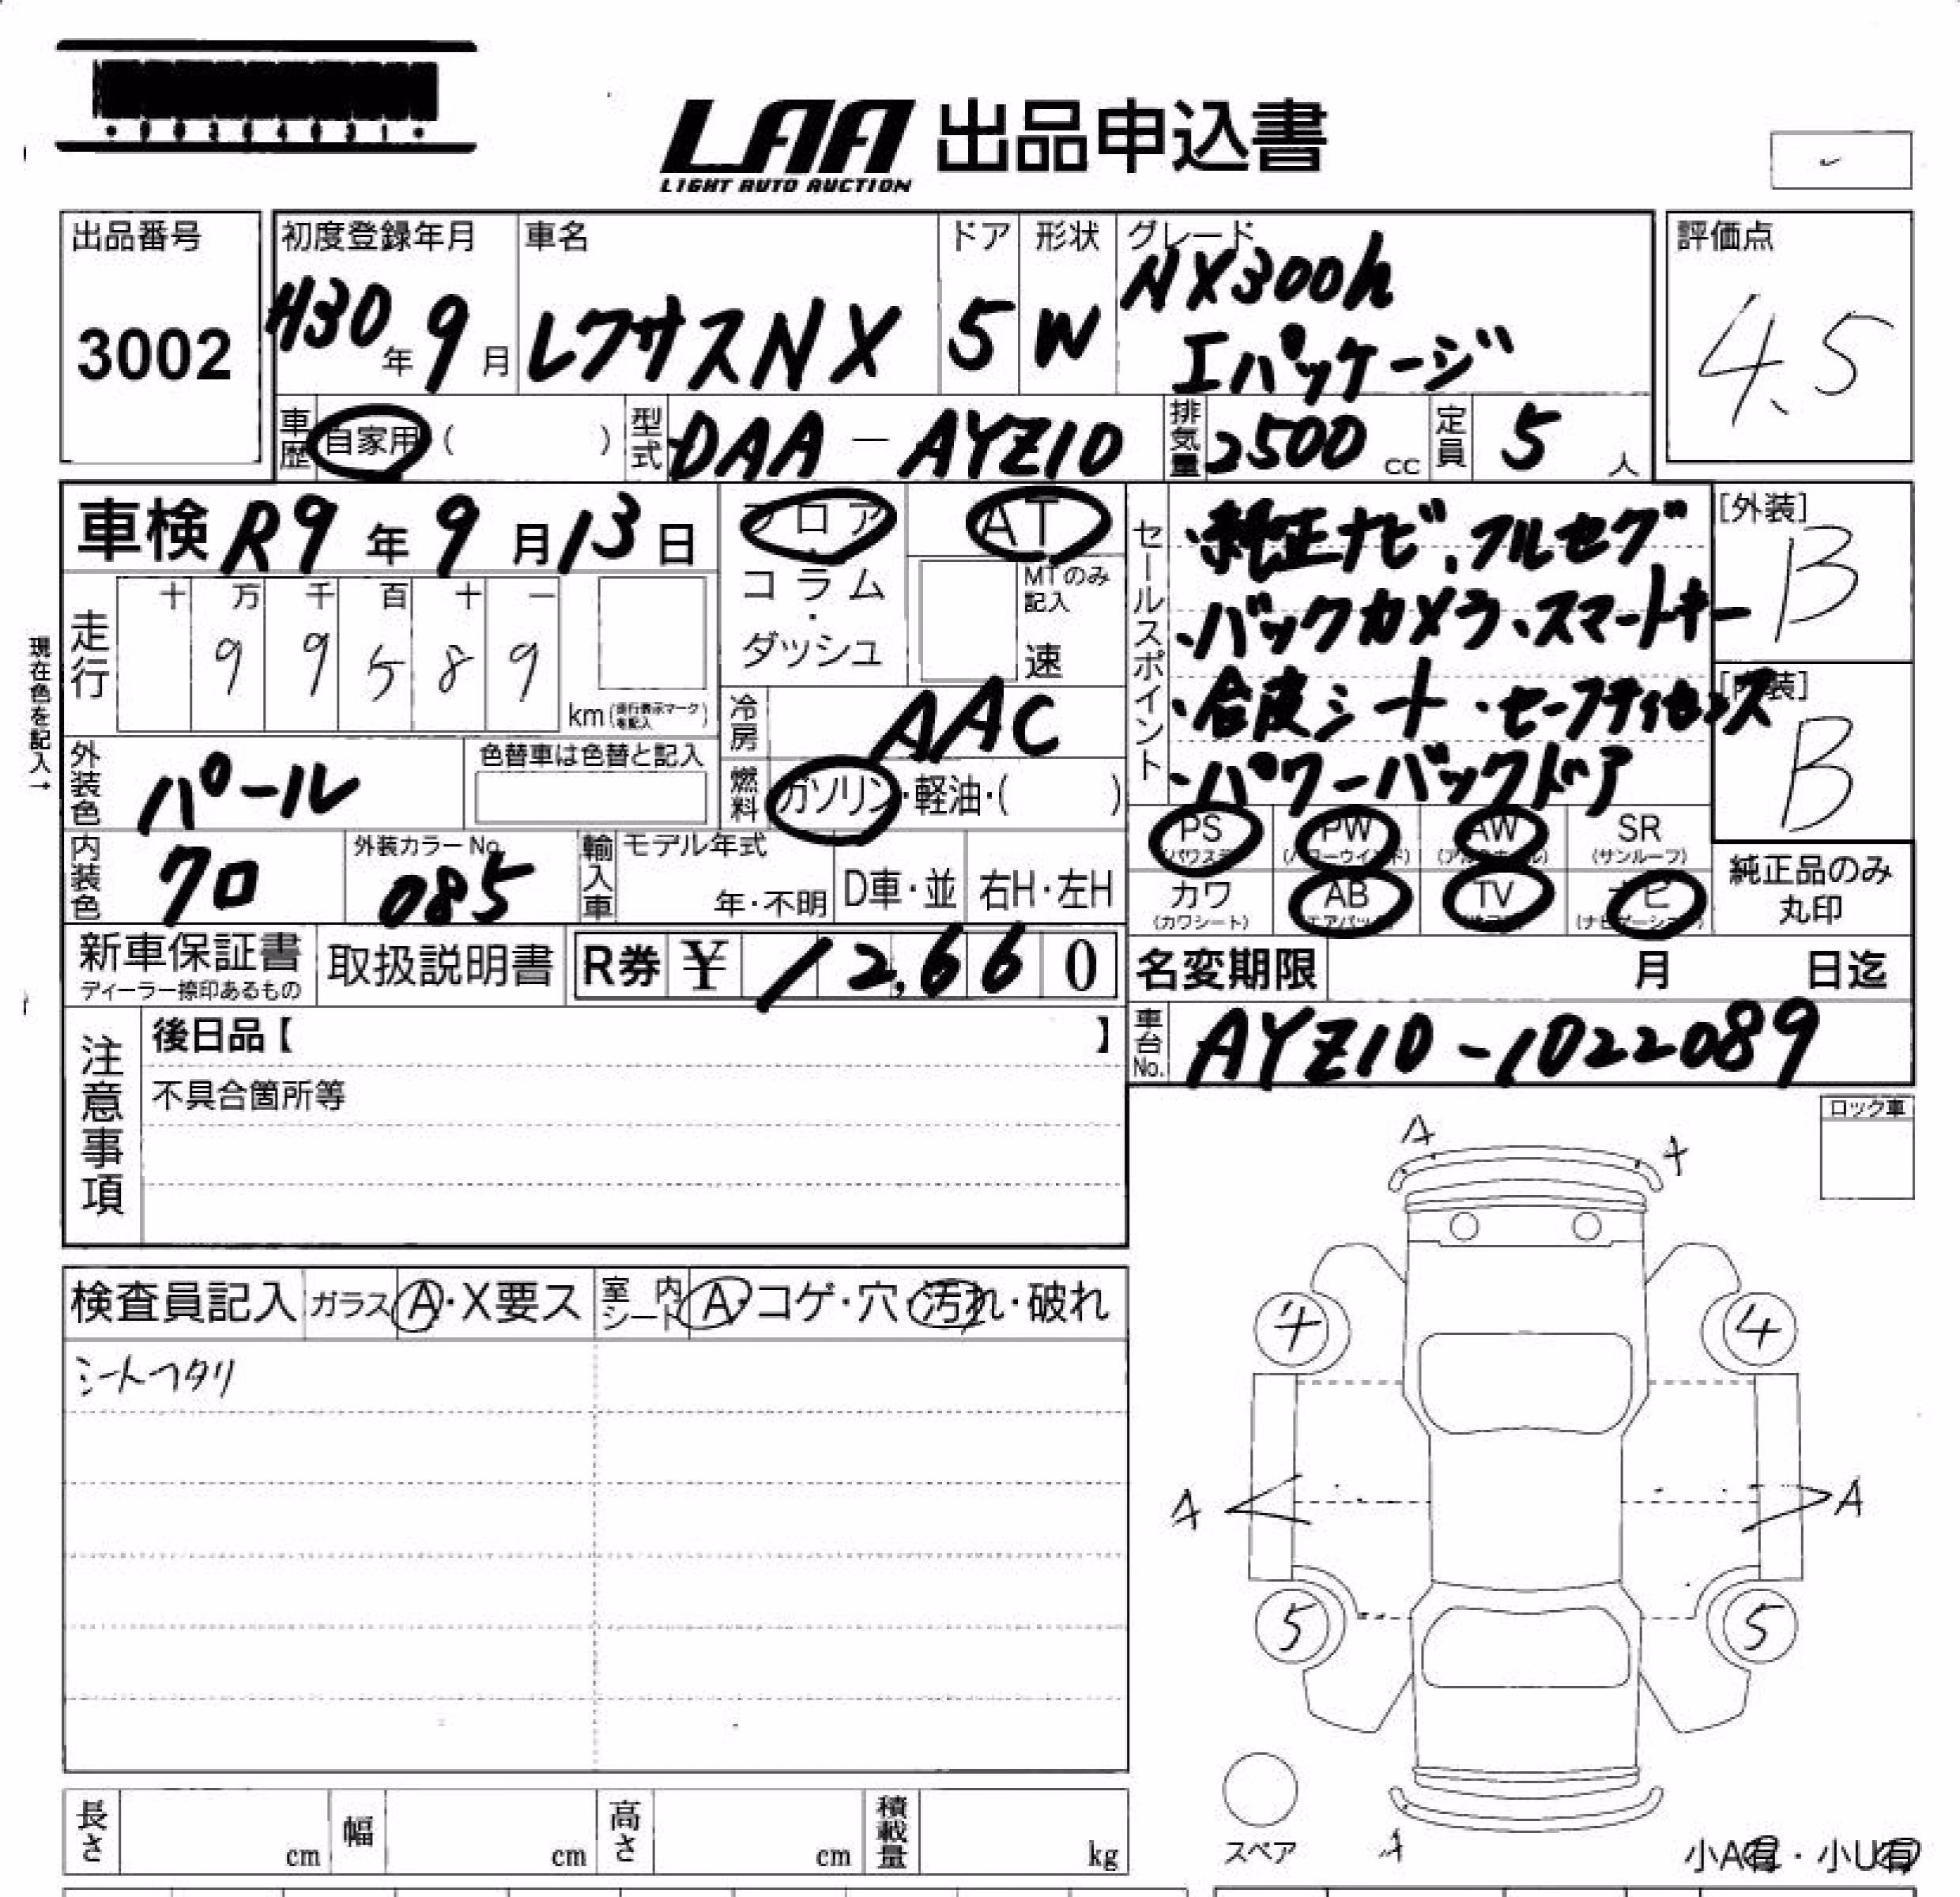 LAA 出品申込書
LIGHT AUTO AUCTION
出品番号
3002
初度登録年月
H30年9月
車名
レクサスNX
ドア
5
形状
W
グレード
NX300h
Iパッケージ
評価点
4.5
車歴 自家用 ( )
型式 DAA-AYZ10
排気量 2500 cc
定員 5 人
車検 R9年9月13日
フロア・コラム・ダッシュ
AT
MTのみ記入
速
現在色を記入→
走行
十 万 千 百 十 一
9 9 5 8 9
km (走行表示マークを記入)
冷房 AAC
燃料 ガソリン・軽油・( )
外装色 パール
色替車は色替と記入
内装色 クロ
外装カラーNo. 085
輸入車 モデル年式
年・不明
D車・並
右H・左H
新車保証書
ディーラー捺印あるもの
取扱説明書
R券 ¥ 12,660
セールスポイント
・純正ナビ、フルセグ
・バックカメラ、スマートキー
・合皮シート・セーフティセンス
・パワーバックドア
[外装]
B
[内装]
B
PS (パワステ)
PW (パワーウインド)
AW (アルミホイール)
SR (サンルーフ)
カワ (カワシート)
AB (エアバッグ)
TV
ナビ (ナビゲーション)
純正品のみ丸印
名変期限 月 日迄
車台No. AYZ10-1022089
注意事項
後日品【 】
不具合箇所等
検査員記入
ガラス A・X要ス
室内シート A・コゲ・穴・汚れ・破れ
シートヘタリ
ロック車
A
A
4
4
A
A
5
5
スペア
A
小A有・小U有
長さ cm
幅 cm
高さ cm
積載量 kg